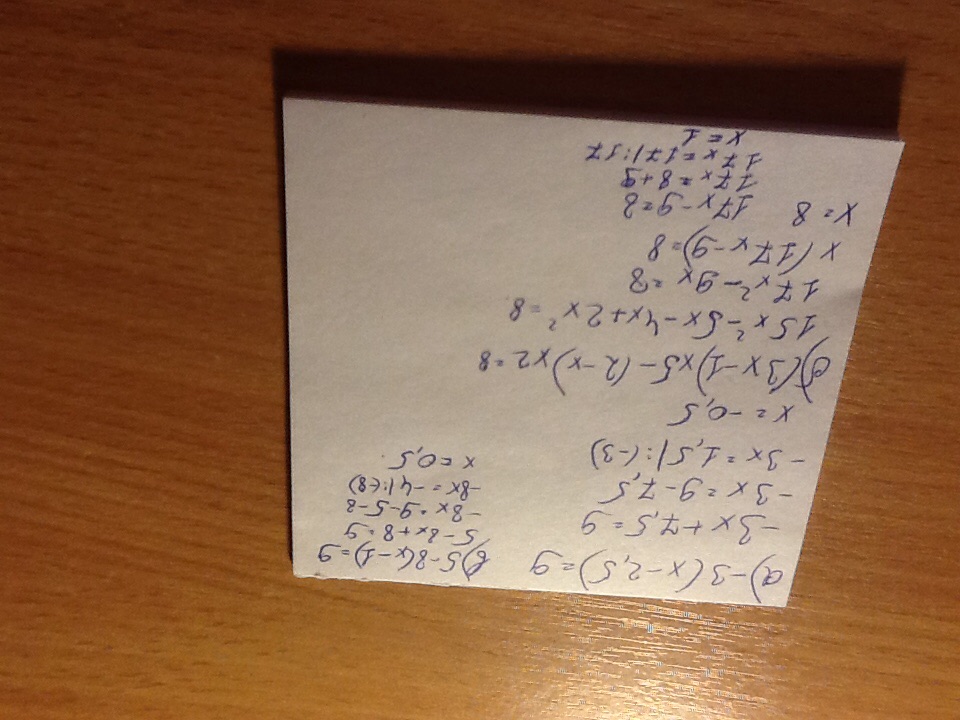 а) -3(x-2,5)=9
-3x+7,5=9
-3x=9-7,5
-3x=1,5|:(-3)
x=-0,5
б) 5-8(x-1)=9
5-8x+8=9
-8x=9-5-8
-8x=-4|:(-8)
x=0,5
(3x-1)x5-(2-x)x2=8
15x²-5x-4x+2x²=8
17x²-9x=8
x(17x-9)=8
x=8 17x-9=8
17x=8+9
17x=17|:17
x=1